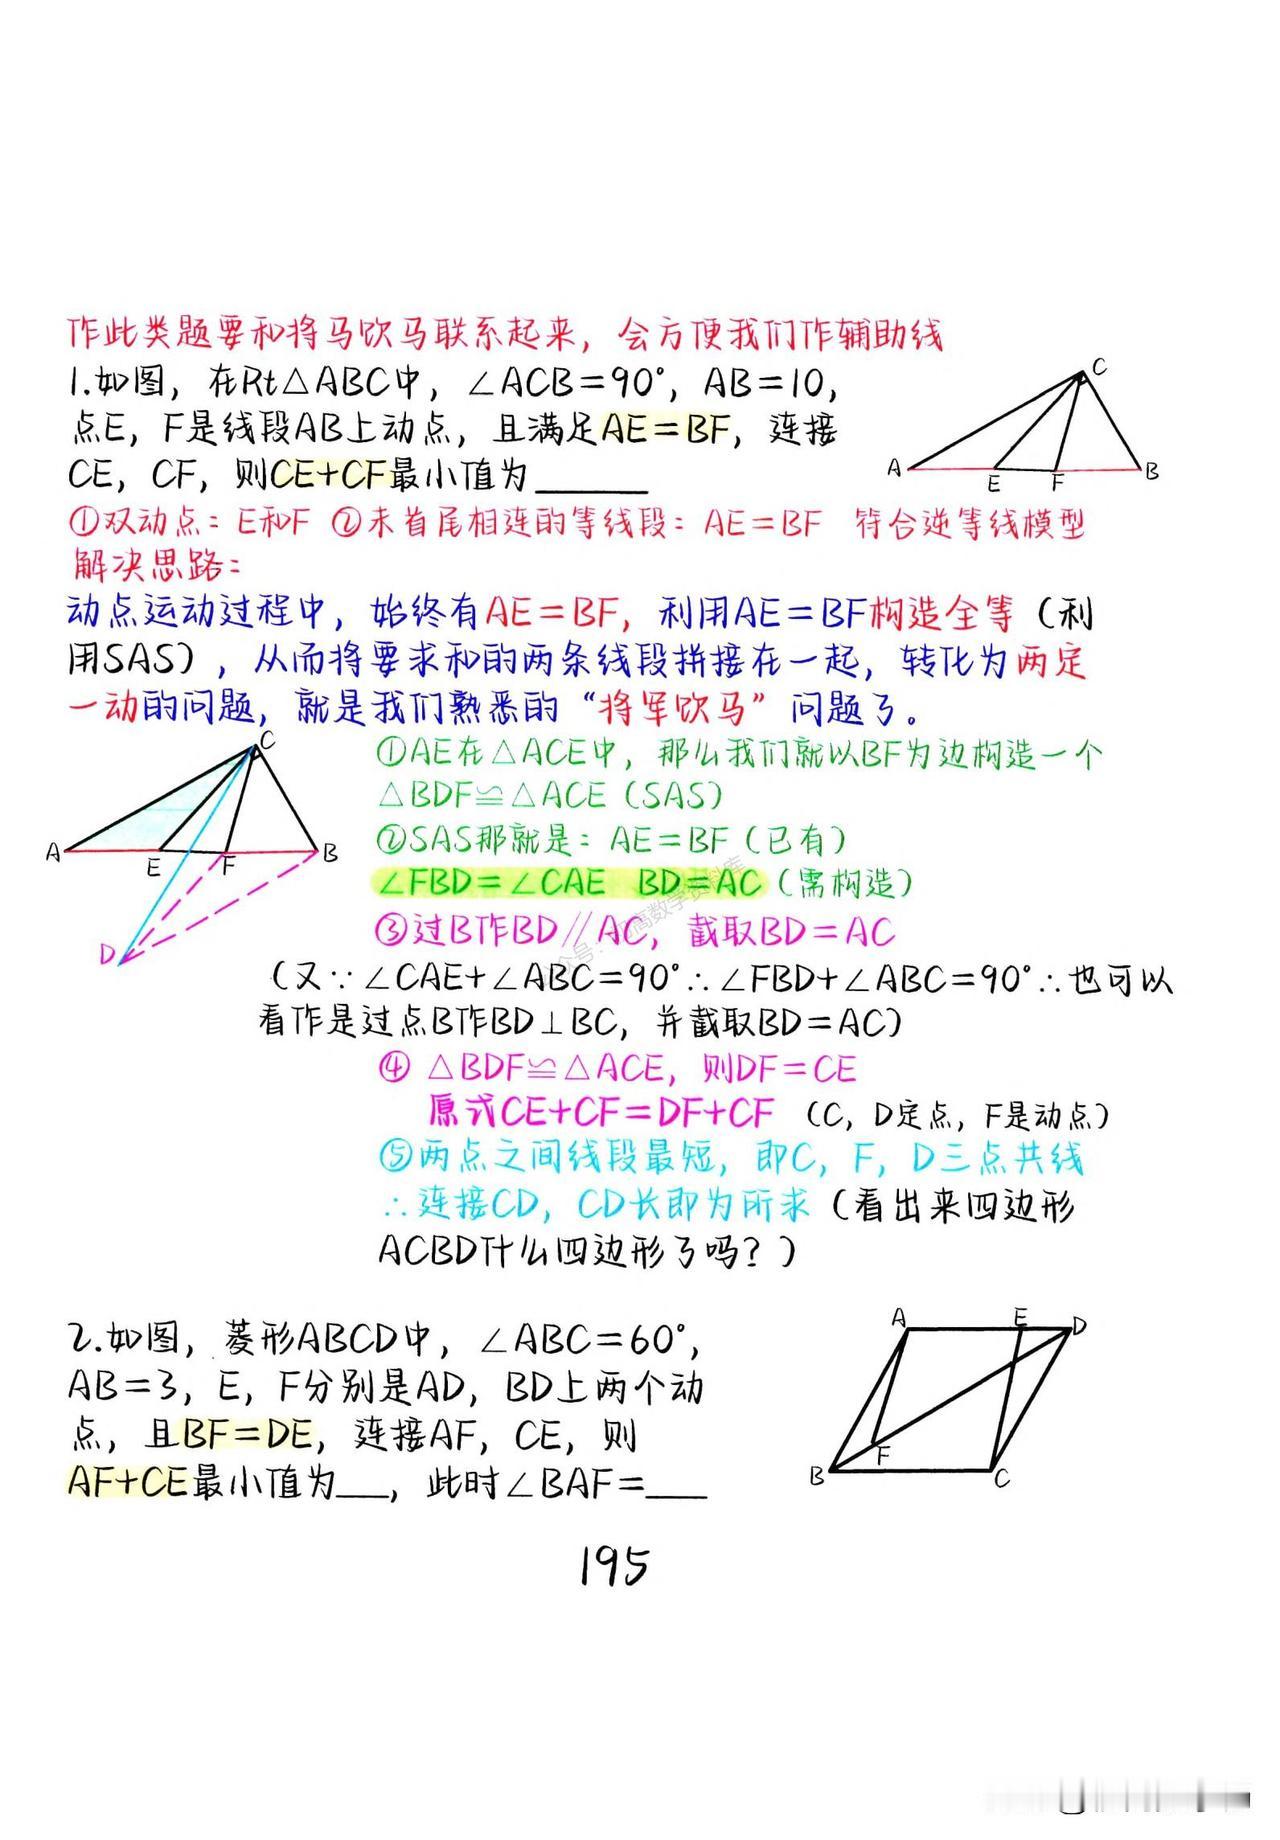 作此类题要和将马饮马联系起来，会方便我们作辅助线
1.如图，在Rt△ABC中，∠ACB=90°，AB=10，
点E，F是线段AB上动点，且满足AE=BF，连接
CE，CF，则CE+CF最小值为______
C
A
E
F
B
①双动点：E和F ②未首尾相连的等线段：AE=BF 符合逆等线模型
解决思路：
动点运动过程中，始终有AE=BF，利用AE=BF构造全等（利
用SAS），从而将要求和的两条线段拼接在一起，转化为两定
一动的问题，就是我们熟悉的“将军饮马”问题了。
C
A
E
F
B
D
①AE在△ACE中，那么我们就以BF为边构造一个
△BDF≌△ACE（SAS）
②SAS那就是：AE=BF（已有）
∠FBD=∠CAE BD=AC（需构造）
③过B作BD∥AC，截取BD=AC
（又∵∠CAE+∠ABC=90°∴∠FBD+∠ABC=90°∴也可以
看作是过点B作BD⊥BC，并截取BD=AC）
④ △BDF≌△ACE，则DF=CE
原式CE+CF=DF+CF（C，D定点，F是动点）
⑤两点之间线段最短，即C，F，D三点共线
∴连接CD，CD长即为所求（看出来四边形
ACBD什么四边形了吗？）
2.如图，菱形ABCD中，∠ABC=60°，
AB=3，E，F分别是AD，BD上两个动
点，且BF=DE，连接AF，CE，则
AF+CE最小值为___，此时∠BAF=___
A
E
D
F
B
C
195